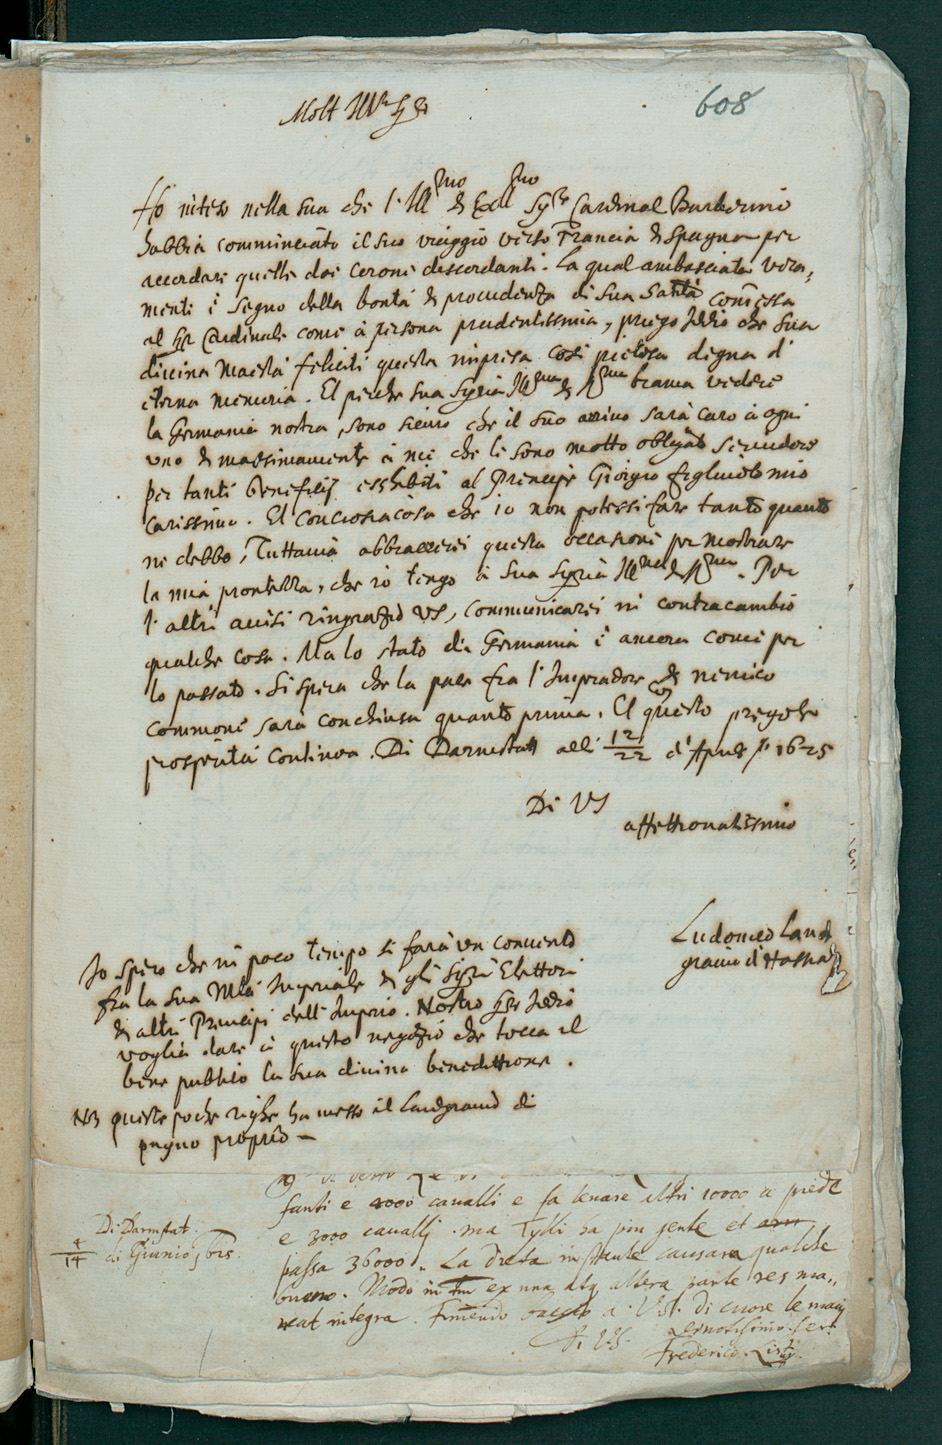 608
Molt Ill.re Sr
Ho inteso nella sua che l'Ill.mo & Ecc.mo Sig.re Cardinal Barberino
habbia comminciato il suo viaggio verso Francia & Spagna per
accordare quelle doi Corone discordanti. La qual ambasciata vera,,
mente è segno della bontà & providenza di sua Satità com̃essa
al Sr Cardinale come à persona prudentissima, priego Iddio che sua
divina Maestà feliciti questa impresa così pietosa digna d'
eterna memoria. Et perche sua Sigria Ill.ma & R.ma brama vedere
la Germania nostra, sono sicuro che il suo arrivo sarà caro à ogni
uno & massimamente à me che le sono molto obligato servidore
per tanti beneficij esshibiti al Principe Giorgio figliuolo mio
carissimo. Et conciosiacosa che io non potessi fare tanto quanto
ne debbo, Tuttavia abbraccerei questa occasione per mostrare
la mia prontezza, che io tengo à sua Sigria Ill.ma & R.ma. Per
l'altri avisi ringrazio VS, communicarei in contracambio
qualche cosa. Ma lo stato di Germania è ancora come per
lo passato. Si spera che la pace fra l'Imperadore & nimico
commone sarà conchiusa quanto prima. Et con questo pregole
prosperità continoa. Di Darmstatt alli 12/22 d'Aprile 1625
Di VS
affettionatissimo
Ludovico Land
gravio d'Hassia
Io spero che in poco tempo si farà un convento
fra la sua Mtà Imperiale & gli Sigri Elettori
& altri Principi dell'Imperio. Nostro Sr Iddio
voglia dare à questo negozio che tocca il
bene publico la sua divina benedittione.
NB queste poche righe ha messo il Landgravio di
pugno proprio
fanti e 4000 cavalli e fa levare altri 10000 a piede
e 3000 cavalli. ma Tylli ha piu gente et
passa 36000. La dieta instante causarà qualche
buono. Modo in tm̃ ex una atq altera parte res ma,,
neat integra. Finiendo baccio a V.S. di cuore le mani
Di Darmstat
4/14 di Giunio 1625.
Di V.S.
Frederico